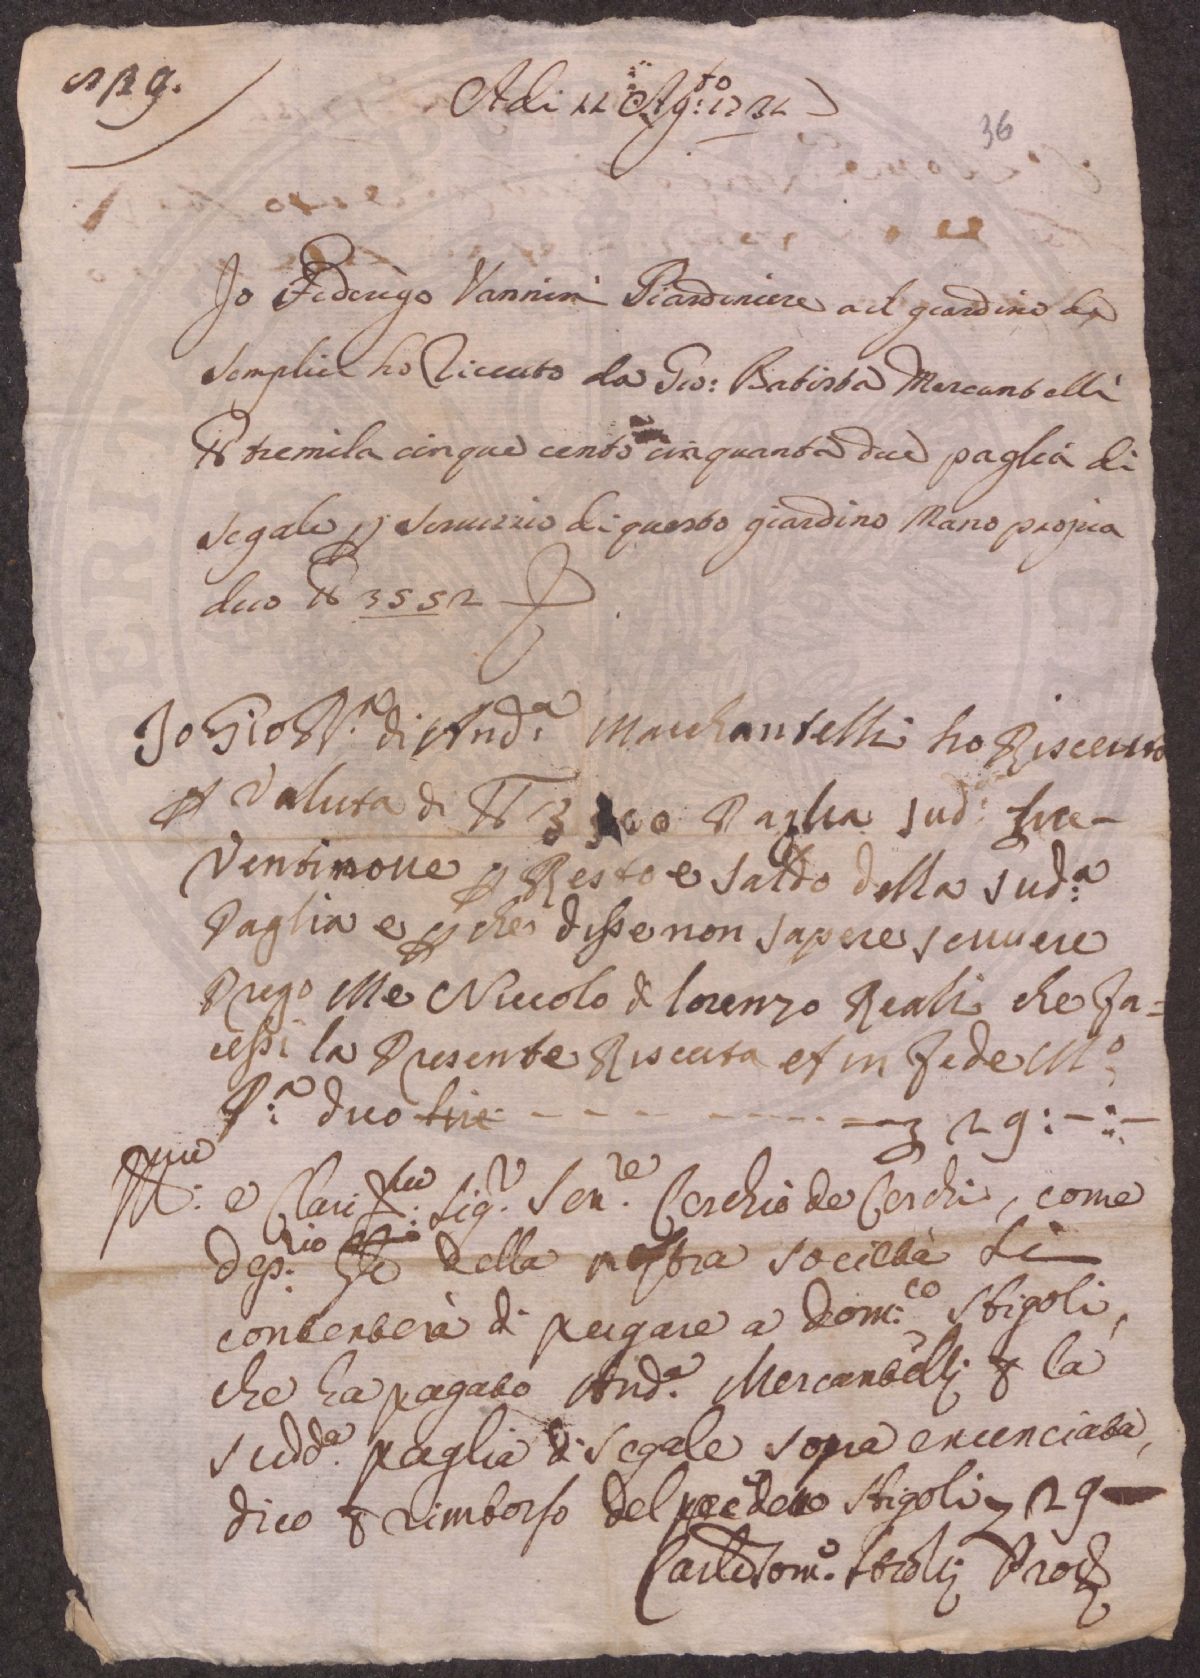 Adi 11 Ag:to 1731
36
Io Federigo Vannini Giardiniere al giardino de
semplici ho riceuto da Gio: Batista Mercantelli
lb tremila cinque cento cinquanta due paglia di
segale p servizzio di questo giardino Mano propia
dico lb 3552
Io Gio Bta di Anda Marchantelli ho Risceuto
p Valuta di lb 3500 Paglia sud: lire
Ventinove p Resto e saldo della suda
Paglia e p che disse non sapere scrivere
Prego Me Niccolo di lorenzo Reali che fa=
cessi la Presente Risceuta et in fede Mo
Pa dico lire - - - - - - 29:-:-
e Clarissmo Sigr Senre Cerchio de Cerchi, come
deprio della nostra società si
contenterà di pagare a Dom:co Stigoli,
che ha pagato And:a Mercantelli p la
sudda paglia di segale sopra enunciata,
dico p rimborso del Stigoli 29